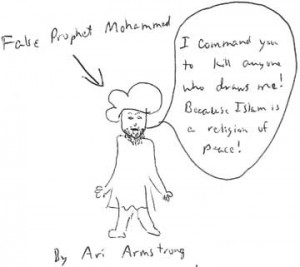 False Prophet Mohammed
I command you
to kill anyone
who draws me!
Because Islam is
a religion of
peace!
By Ari Armstrong